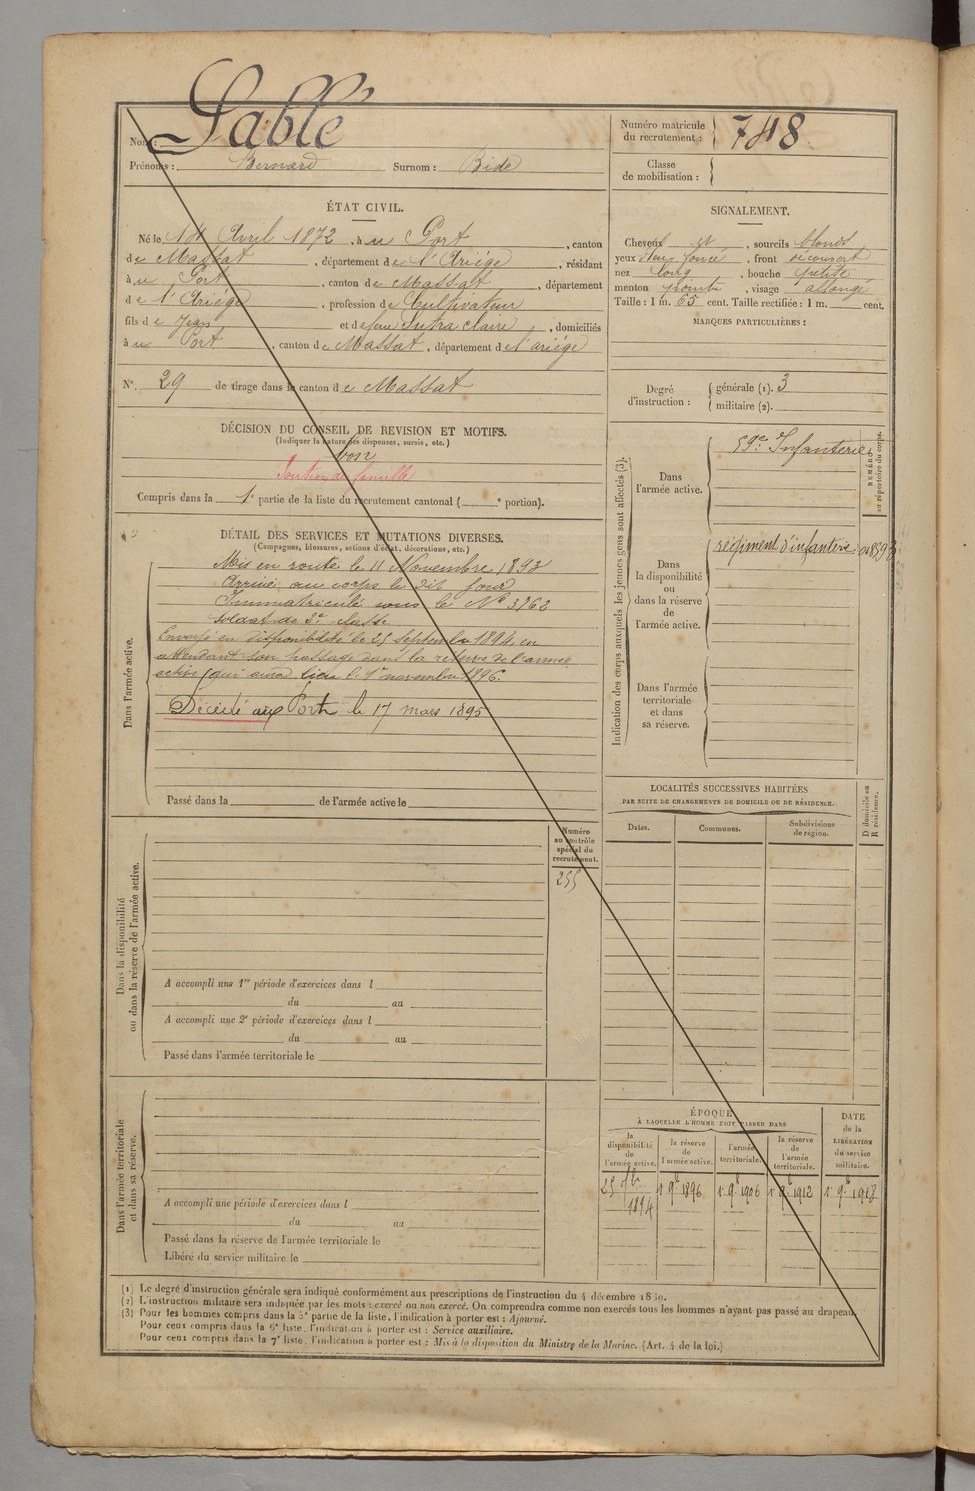 Nom : Sablé
Prénoms : Bernard Surnom : Bide
Numéro matricule du recrutement : 748
Classe de mobilisation :
ÉTAT CIVIL.
Né le 14 Avril 1872, à u Port, canton
de Massat, département de l'Ariège, résidant
à u Port, canton de Massat, département
de l'Ariège, profession de Cultivateur
fils de Jean et de feue Sutra Claire, domiciliés
à u Port, canton de Massat, département de l'ariège
N°. 29 de tirage dans le canton de Massat
DÉCISION DU CONSEIL DE REVISION ET MOTIFS.
(Indiquer la nature des dispenses, sursis, etc.)
bon
Soutien de famille
Compris dans la 1e partie de la liste du recrutement cantonal ( e portion).
DÉTAIL DES SERVICES ET MUTATIONS DIVERSES.
(Campagnes, blessures, actions d'éclat, décorations, etc.)
Dans l'armée active.
Mis en route le 11 Novembre 1893
Arrivé au corps le dit jour
Immatriculé sous le N° 3762
Soldat de 2e classe
Envoyé en disponibilité le 25 septembre 1894, en
attendant son passage dans la réserve de l'armée
active (qui aura lieu le 1er novembre 1896.
Décédé aux Port le 17 mars 1895
Passé dans la de l'armée active le
SIGNALEMENT.
Cheveux et, sourcils blonds
yeux bleu foncé, front découvert
nez long, bouche petite
menton pointu, visage allongé
Taille : 1 m. 65 cent. Taille rectifiée : 1 m. cent.
MARQUES PARTICULIÈRES :
Degré d'instruction :
générale (1). 3
militaire (2).
Indication des corps auxquels les jeunes gens sont affectés (3).
NUMÉRO au répertoire du corps.
Dans l'armée active.
59e Infanterie
Dans la disponibilité ou dans la réserve de l'armée active.
régiment d'infanterie
Dans l'armée territoriale et dans sa réserve.
LOCALITÉS SUCCESSIVES HABITÉES
PAR SUITE DE CHANGEMENTS DE DOMICILE OU DE RÉSIDENCE.
Dates.
Communes.
Subdivisions de région.
D domicile ou R résidence.
Dans la disponibilité ou dans la réserve de l'armée active.
Numéro au contrôle spécial du recrutement.
255
A accompli une 1re période d'exercices dans l
du au
A accompli une 2e période d'exercices dans l
du au
Passé dans l'armée territoriale le
Dans l'armée territoriale et dans sa réserve.
A accompli une période d'exercices dans l
du au
Passé dans la réserve de l'armée territoriale le
Libéré du service militaire le
ÉPOQUE
À LAQUELLE L'HOMME DOIT PASSER DANS
la disponibilité de l'armée active.
la réserve de l'armée active.
l'armée territoriale.
la réserve de l'armée territoriale.
DATE de la LIBÉRATION du service militaire.
25 7bre 1894
1r 9b 1896
1r 9b 1906
1r 9b 1912
1r 9b 1918
(1) Le degré d'instruction générale sera indiqué conformément aux prescriptions de l'instruction du 4 décembre
(2) L'instruction militaire sera indiquée par les mots : exercé ou non exercé. On comprendra comme non exercés tous les hommes n'ayant pas passé au drapeau.
(3) Pour les hommes compris dans la 5e partie de la liste, l'indication à porter est : Ajourné.
Pour ceux compris dans la 6e liste, l'indication à porter est : Service auxiliaire.
Pour ceux compris dans la 7e liste, l'indication à porter est : Mis à la disposition du Ministre de la Marine. (Art. 4 de la loi.)